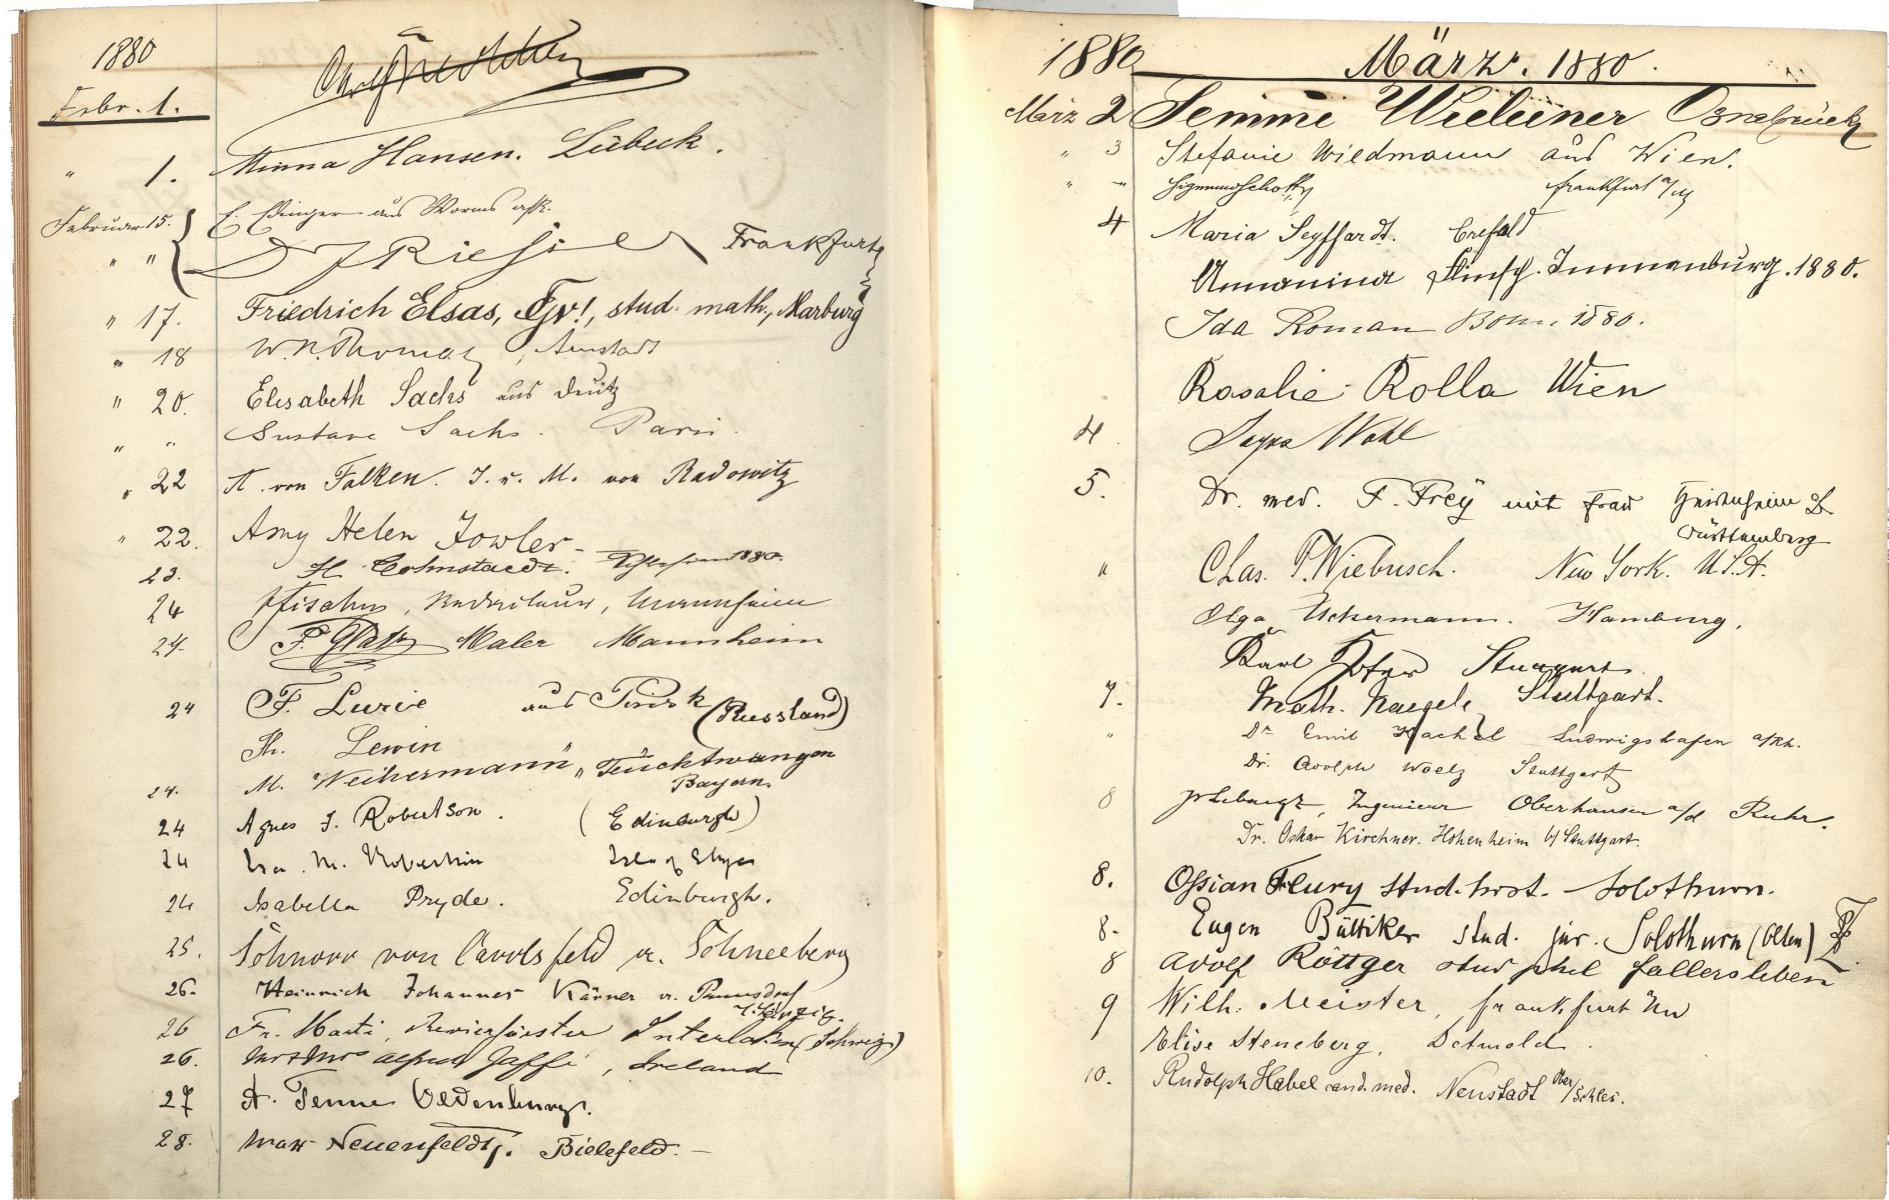 1880
Febr. 1.
" 1. Minna Hansen. Lübeck.
Februar 15. E. Edinger aus Worms
" " Frankfurt
" 17. Friedrich Elsas, stud. math., Marburg
" 18 W. N. Thomas, Arnstadt
" 20. Elisabeth Sachs aus Deutz
" " Gustave Sachs. Paris.
" 22 A. von Falken. J. u. M. von Radowitz
" 22. Amy Helen Fowler
23. H. Cohnstaedt. 1880.
24 Mannheim
24 F. Glatz Maler Mannheim
24 F. Lurie aus Pinsk (Russland)
Th. Lewin
24. M. Weihermann " Feuchtwangen
Bayern.
24 Agnes J. Robertson. (Edinburgh)
24 M. Robertson Isle of Skye
24 Isabella Pryde. Edinburgh.
25. Schnorr von Carolsfeld a. Schneeberg
26. Heinrich Johannes Körner a.
b. Leipzig.
26 Fr. Marti, Revierförster Interlaken (Schweiz)
26. Jaffé, Ireland
27 A. Tenne Oldenburg.
28. Max Neuenfeldt. Bielefeld.
1880 März. 1880.
März 2 Osnabrück
" 3 Stefanie Wiedmann aus Wien.
" " Sigmund Schott Frankfurt a/M
4 Maria Seyffardt. Crefeld
Annanina 1880.
Ida Roman Bonn 1880.
Rosalie Rolla Wien
4. Wohl
5. Dr. med. F. Frey mit Frau Heidenheim
Württemberg
" Chas. F. Wiebusch. New York. U.S.A.
Olga Uckermann. Hamburg.
Karl Stuttgart.
7. Math. Naegele, Stuttgart.
" Dr Emil Kachel Ludwigshafen a/Rh.
Dr. Adolph Woelz Stuttgart
8 Ingenieur Oberhausen a/d Ruhr.
Dr. Oskar Kirchner. Hohenheim b/ Stuttgart.
8. Ossian Flury stud. Solothurn.
8. Eugen Büttiker stud. jur. Solothurn (Olten)
8 Adolf Röttger stud phil Fallersleben
9 Wilh. Meister, Frankfurt
Elise Steneberg, Detmold.
10. Rudolph Habel cand. med. Neustadt Ober/Schles.